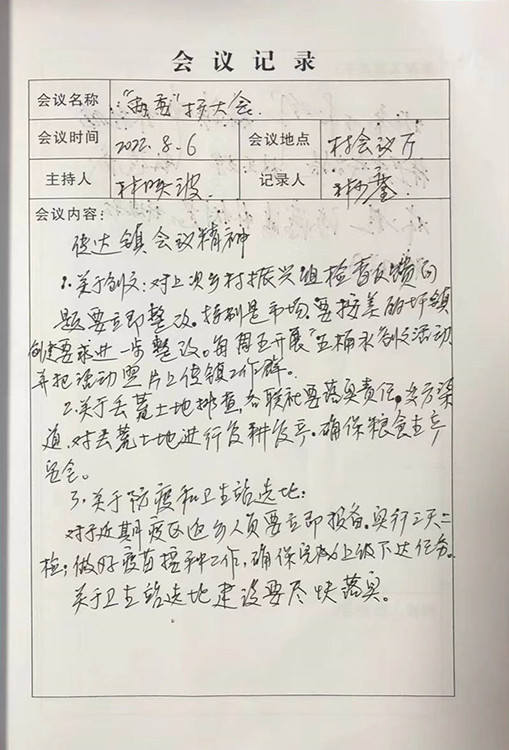 会议记录
会议名称 "两委"扩大会
会议时间 2022.8.6 会议地点 村会议厅
主持人 记录人
会议内容:
传达镇会议精神
1.关于创文:对上次乡村振兴组检查反馈问
题要立即整改。特别是市场,要按美的圩镇
创建要求进一步整改。每周五开展"五桶水"创文活动
并把活动照片上传镇工作群。
2.关于丢荒土地排查,各联社要落实责任。多方渠
道,对丢荒土地进行复耕复产。确保粮食生产
安全。
3.关于防疫和卫生站选地:
对于近期疫区返乡人员要立即报备。实行三天二
检;做好疫苗接种工作,确保完成上级下达任务。
关于卫生站选地建设要尽快落实。